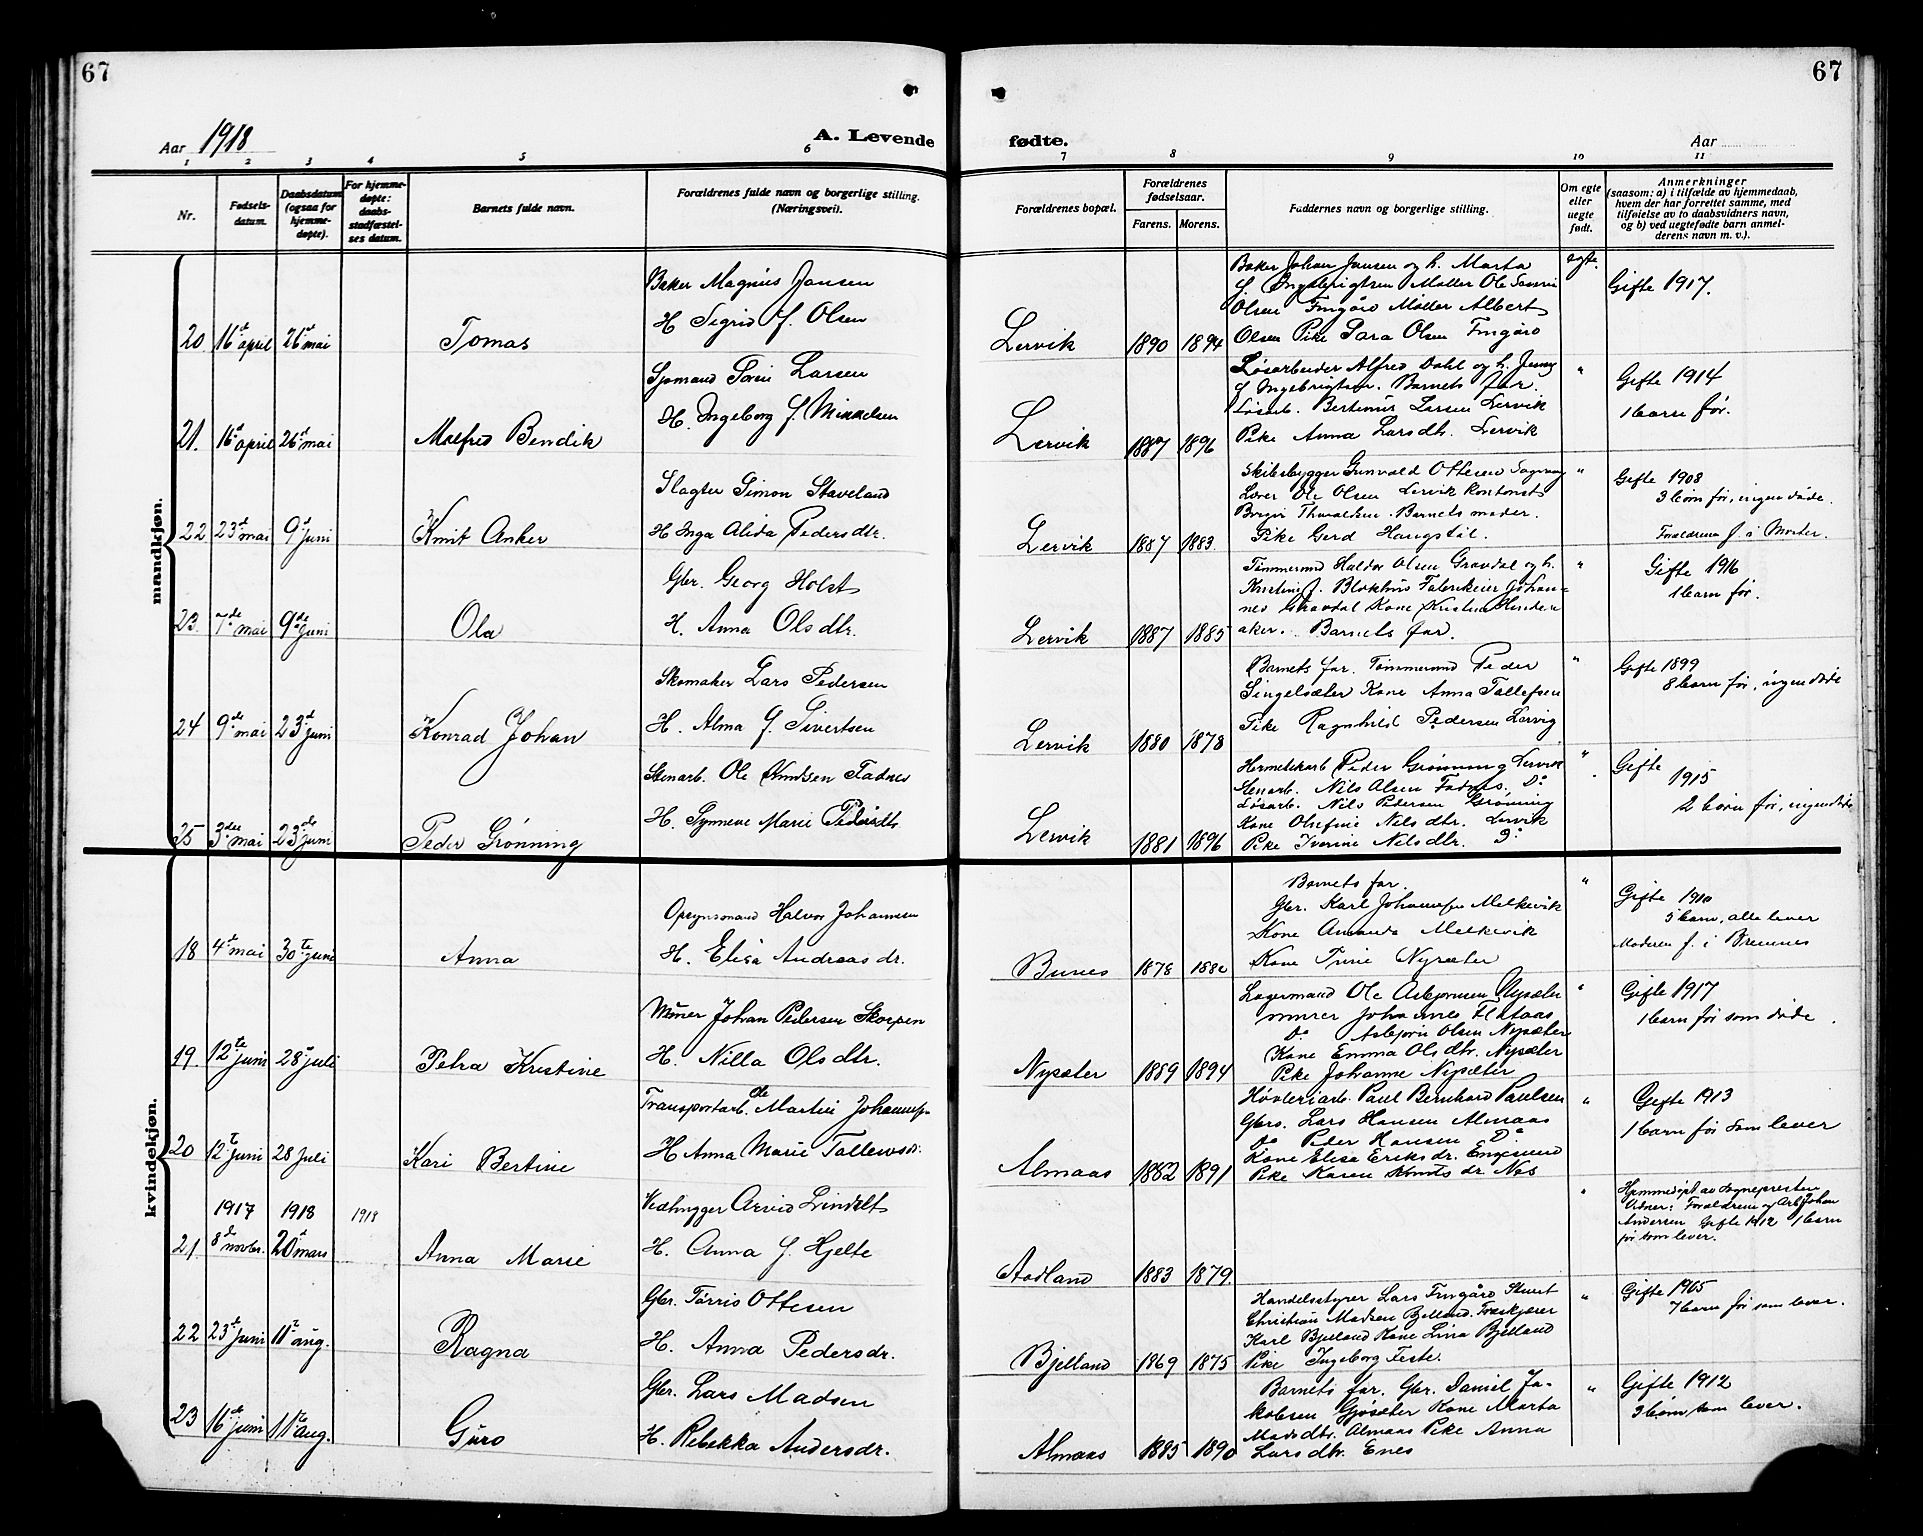 67
67
Aar 1918
A. Levende
fødte.
Aar
1 2 3 4 5 6 7 8 9 10 11
Nr.
Fødsels-
datum.
Daabsdatum
(ogsaa for
hjemme-
døpte).
For hjemme-
døpte:
daabs-
stadfæstel-
ses datum.
Barnets fulde navn.
Forældrenes fulde navn og borgerlige stilling.
(Næringsvei).
Forældrenes bopæl.
Forældrenes
fødselsaar.
Farens. Morens.
Faddernes navn og borgerlige stilling.
Om egte
eller
uegte
født.
Anmerkninger
(saasom: a) i tilfælde av hjemmedaab,
hvem der har forrettet samme, med
tilføielse av to daabsvidners navn,
og b) ved uegtefødte barn anmel-
derens navn m. v.).
mandkjøn.
20. 16de april 26de mai
Tomas
Baker Magnus Jansen
H Sigrid f. Olsen
Lervik 1890 1894
Baker Johan Jansen og h. Marta
f. Ingebrigtsen Møller Ole
Olsen Tingåro Møller Albert
Olsen Pike Sara Olsen Tingåro
egte.
Gifte 1917.
21. 16de april 26de mai
Malfred Bendik
Sjømand Larsen
H. Ingeborg f. Mikkelsen
Lervik 1887 1896
Løsarbeider Alfred Dahl og h. Jenny
f. Ingebrigtsen. Barnets far.
Løsarb. Bertinus Larsen Lervik
Pike Anna Larsdtr. Lervik
"
Gifte 1914
1 barn før.
22 23de mai 9de juni
Knut Anker
Slagter Simon Staveland
H Inga Alida Pedersdtr.
Lervik 1887 1883.
Skibsbygger Gunvald Ottesen
Lærer Ole Olsen Lervik Kontorist
Thorvaldsen. Barnets moder.
Pike Gerd Haugstøl.
"
Gifte 1908
3 børn før, ingen døde.
Forældrene f. i Moster.
23. 7de mai 9de juni
Ola
Gbr. Georg Holst
H. Anna Olsdtr.
Lervik 1887 1885
Tømmermd Haldor Olsen Gravdal og h.
Kristine f. Blokhus Fabrikeier Johan-
nes Gravdal Kone Kristine
aker. Barnets far.
"
Gifte 1916
1 barn før.
24 9de mai 23de juni
Konrad Johan
Skomaker Lars Pedersen
H. Alma f. Sivertsen
Lervik 1880 1878
Barnets far. Tømmermd Peder
Singelsæter Kone Anna Tollefsen
Pike Ragnhild Pedersen Lervig
"
Gifte 1899
8 barn før, ingen døde
25 3die mai 23de juni
Peder Grønning
Stenarb. Ole Knudsen Fadnes
H. Synneve Marie Pedersdtr
Lervik 1881 1896
Hermetikarb Peder Grønning Lervik
Stenarb. Nils Olsen Fadnes. Do
Løsarb. Nils Pedersen Grønning
Kone Olufine Nilsdtr. Lervik
Pike Iverine Nilsdtr. Do
"
Gifte
1915
2 børn før, ingen døde
kvindekjøn.
18 4de mai 30te juni
Anna
Opsynsmand Halvor Johannesen
H. Elisa Andreasdr.
Bunes 1878 1882
Barnets far.
Gbr. Karl Johannesen Melkevik
Kone Amanda Melkevik
Kone Trine Nysæter
"
Gifte 1910
5 barn, alle lever
Moderen f. i Bremnes
19. 12te juni 28de juli
Petra Kristine
Murer Johan Pedersen Skorpen
H. Nilla Olsdtr.
Nysæter 1889 1894
Lagermand Ole Asbjørnsen Nysæter
murer Johannes Flataas
Do Asbjørn Olsen Nysæter
Kone Emma Olsdtr. Nysæter
Pike Johanne Nysæter
"
Gifte 1917
1 barn før som døde.
20 12te juni 28 juli
Kari Bertine
Transportarb. Ole Martin Johannesen
H Anna Marie Tollewsdr.
Almaas 1882 1891
Høvleriarb. Paul Bernhard Paulsen
Gbrs. Lars Hansen Almaas
Do Peder Hansen Do
Kone Elisa Eriksdr. Engesund
Pike Karen Knutsdr. Nes
"
Gifte 1913
1 barn før som lever
1917 1918 1918
21. 8de novbr. 20de mars
Anna Marie
Veibygger Arvid Lindelt
H. Anna f. Hjelte
Aadland 1883 1879
"
Hjemmedøpt av sognepresten
Vidner: Forældrene og Arb. Johan
Andersen Gifte 1912 1 barn
før som lever.
22 23de juni 11te aug.
Ragna
Gbr. Tørris Ottesen
H. Anna Pedersdr.
Bjelland 1869 1875
Handelsstyrer Lars Tingåro
Christian Madsen Bjelland. Træskjærer
Karl Bjelland Kone Lina Bjelland
Pike Ingeborg Feste.
"
Gifte 1905
7 barn før som lever.
23 16de juni 11te aug.
Guro
Gbr. Lars Madsen
H. Rebekka Andersdr.
Almaas 1885 1890
Barnets far. Gbr. Daniel Ja-
kobsen Gjøsæter Kone Marta
Madsdtr. Almaas Pike Anna
Larsdtr. Enes
"
Gifte 1912
3 børn som lever.